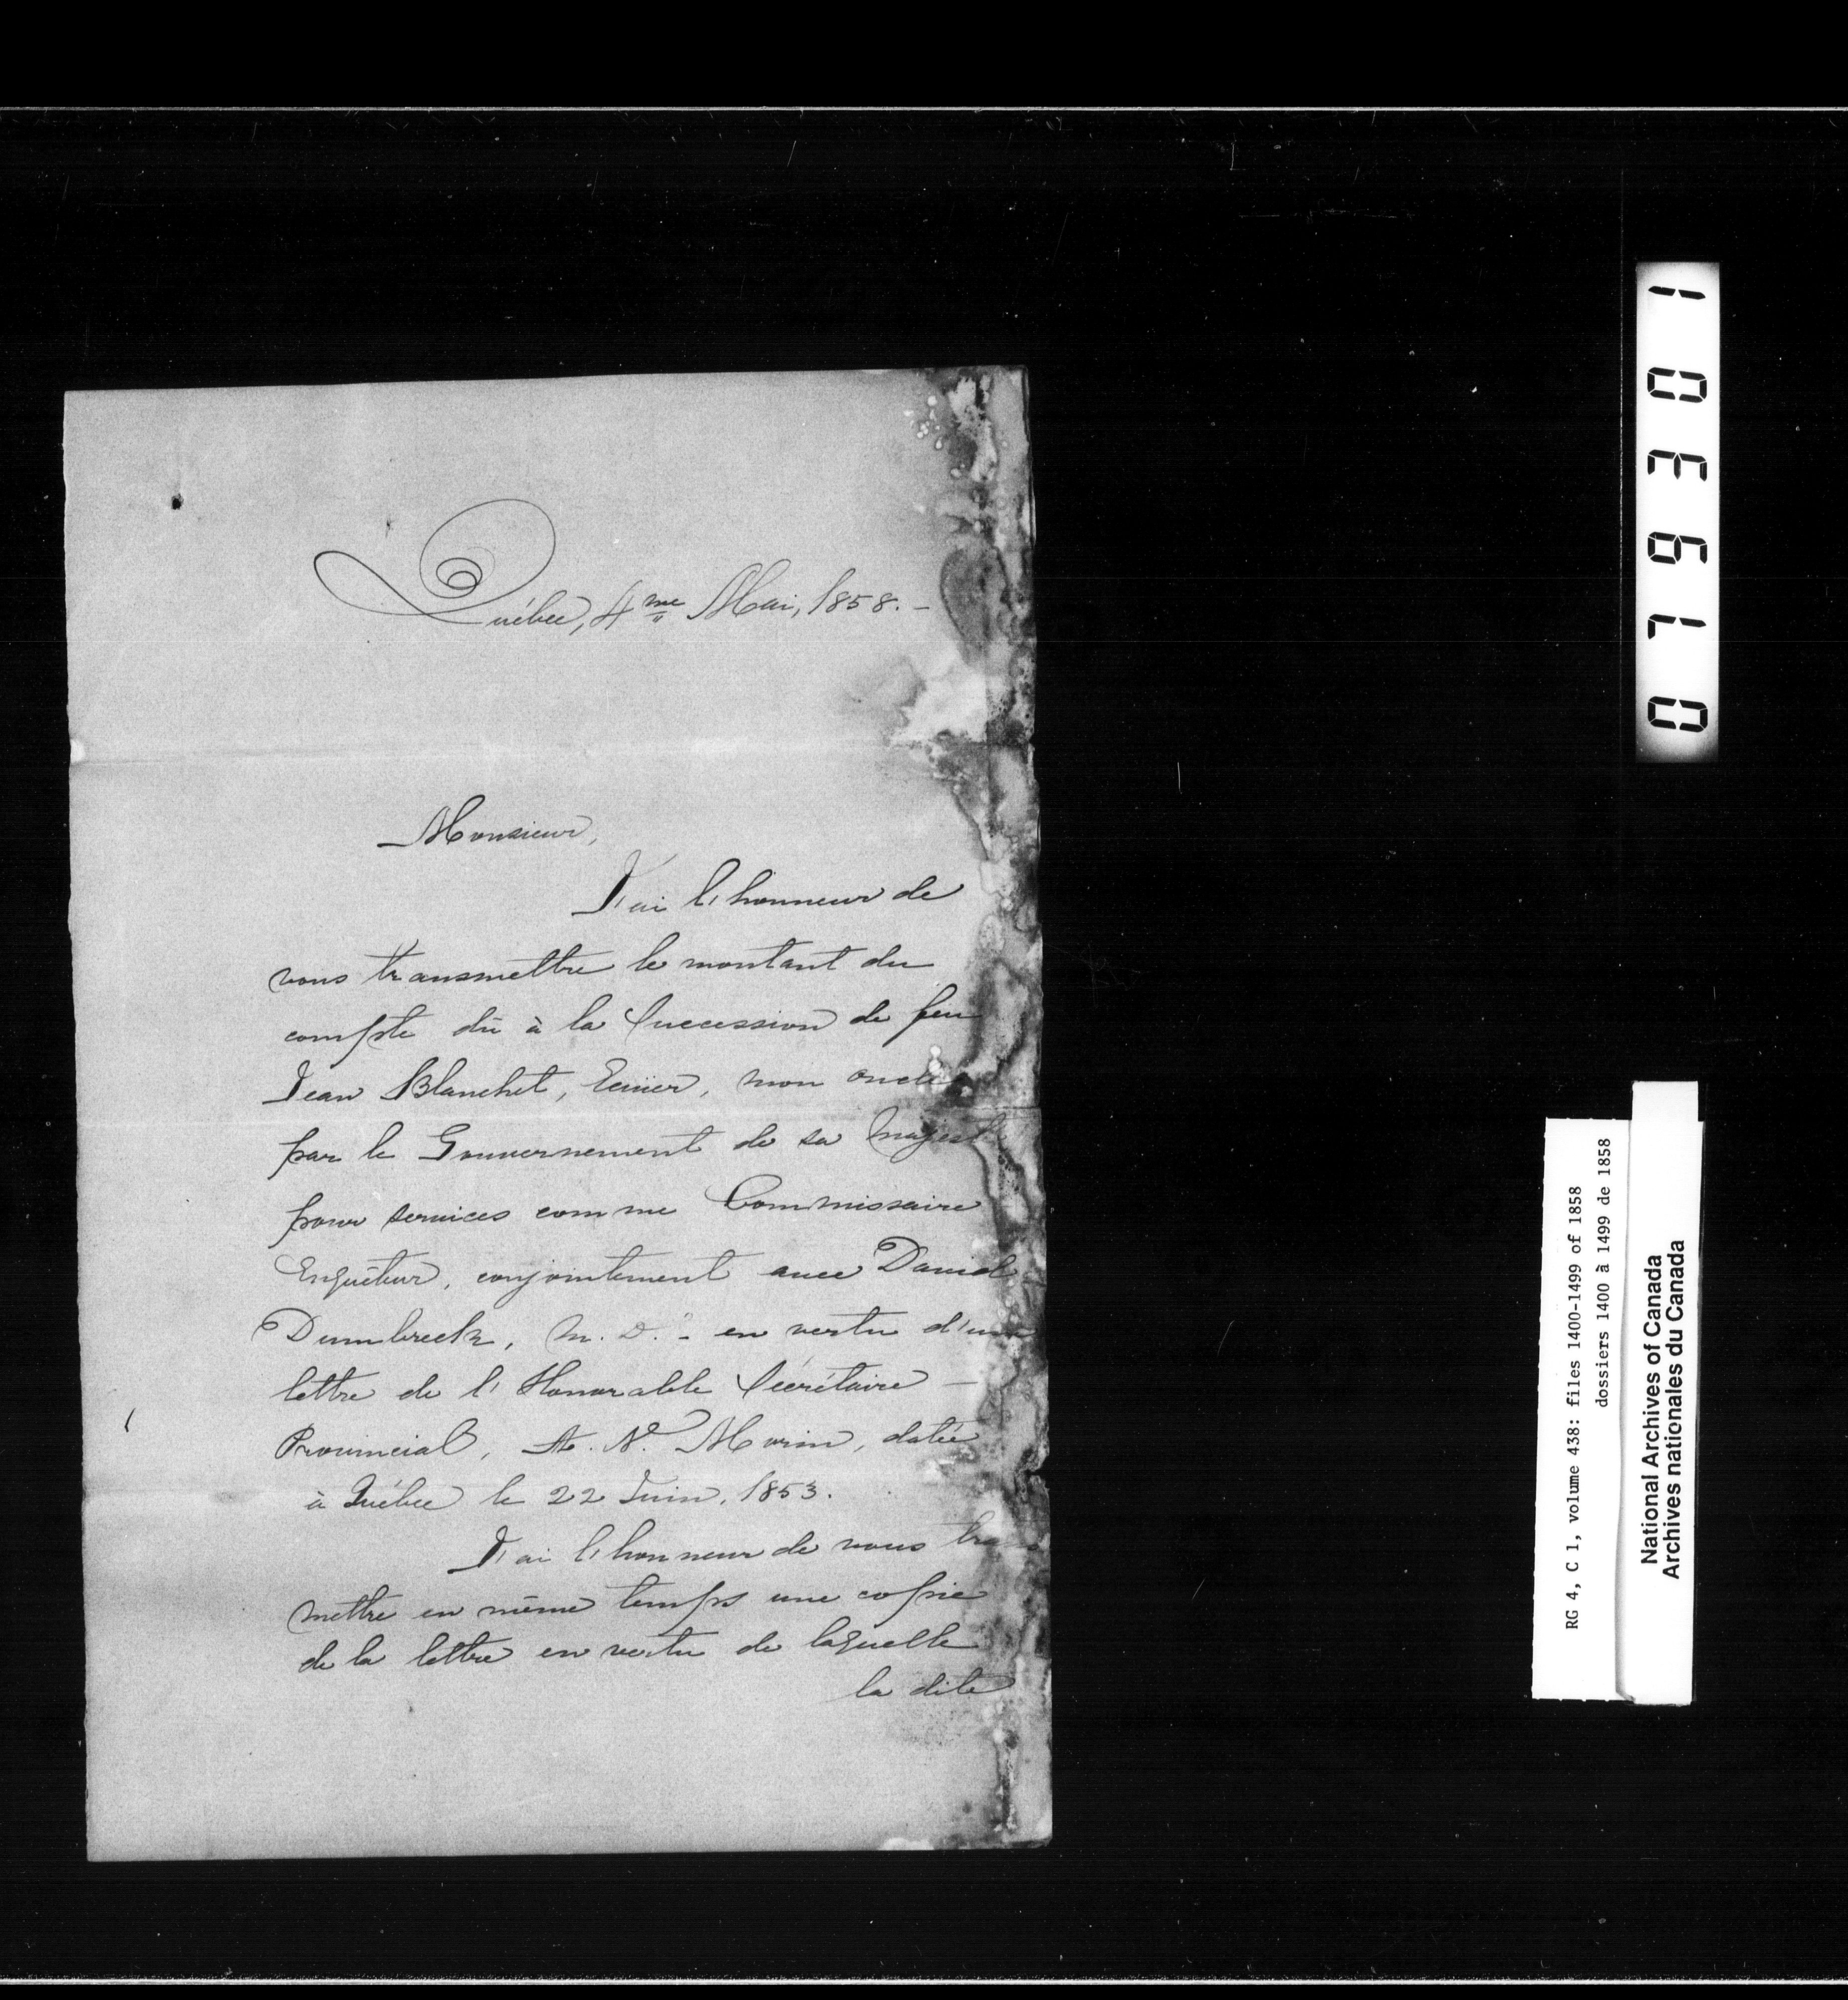 Québec, 4me Mai, 1858.-
Monsieur,
J'ai l'honneur de
vous transmettre le montant du
compte dû à la Succession de feu
Jean Blanchet, Ecuier, mon oncle
par le Gouvernement de sa Majest
pour services comme Commissaire
Enquêteur, conjointement avec Daniel
Dumbreck, M. D. - en vertu d'une
lettre de l'Honorable Sécrétaire -
Provincial, A. N. Morin, datée
à Québec le 22 Juin, 1853.
J'ai l'honneur de vous trans
mettre en même temps une copie
de la lettre en vertu de laquelle
la dite
079301
RG 4, C 1, volume 438: files 1400-1499 of 1858
dossiers 1400 à 1499 de 1858
National Archives of Canada
Archives nationales du Canada